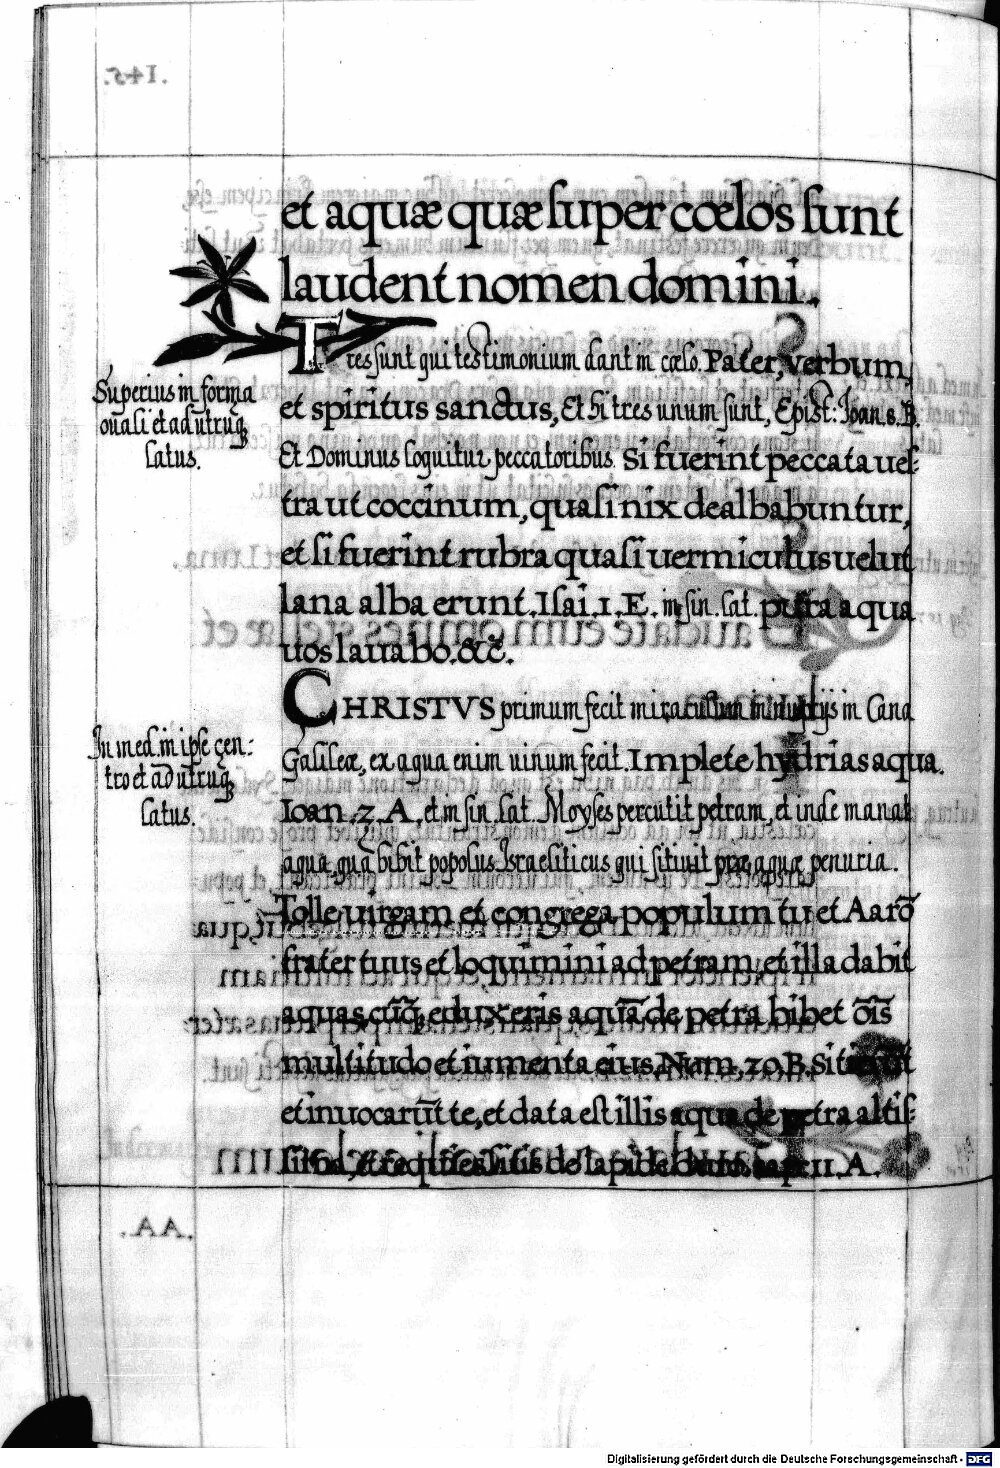 et aquæ quæ super cœlos sunt
laudent nomen domini.
Tres sunt qui testimonium dant in cœlo. Pater, verbum,
Superius in forma
et spiritus sanctus, Et hi tres unum sunt, Epist: Joan. 8. B.
ouali et ad utruq
latus.
Et Dominus loquitur peccatoribus. Si fuerint peccata ues-
tra ut coccinum, quasi nix dealbabuntur,
et si fuerint rubra quasi uermiculus uelut
lana alba erunt. Isai. 1. E. in sin. lat. pura aqua
uos lauabo. &c.
CHRISTVS primum fecit miraculum in nuptijs in Cana
In med. in ipse cen:
Galileæ, ex aqua enim uinum fecit. Implete hydrias aqua.
tro et ad utruq
Ioan. 2. A, et in sin. lat. Moyses percutit petram, et inde manat
latus.
aqua, qua bibit populus Israeliticus qui sitiuit præ aquæ penuria.
Tolle uirgam et congrega populum tu et Aarō
frater tuus et loquimini ad petram, et illa dabit
aquas, cūq eduxeris aquā de petra bibet oīs
multitudo et iumenta eius, Num. 20. B. Sitierūt
et inuocarūt te, et data est illis aqua de petra altis-
sima, et requies sitis de lapide duro. sap: 11. A.
.145.
.AA.
Digitalisierung gefördert durch die Deutsche Forschungsgemeinschaft - DFG